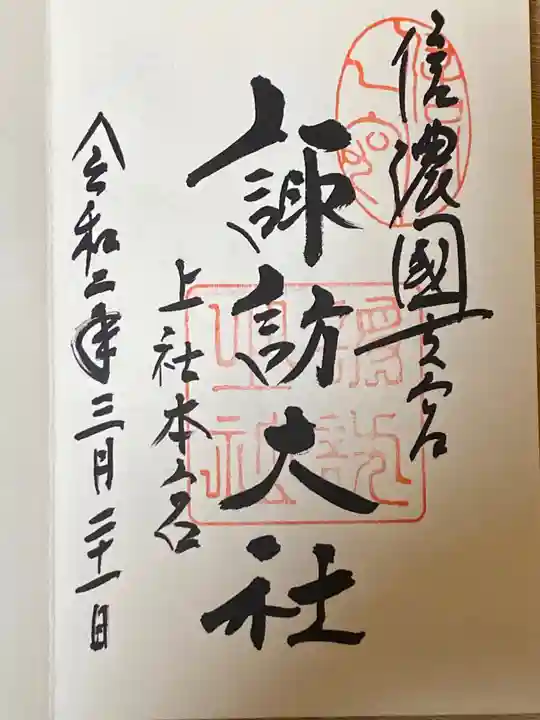 信濃國一宮
諏訪大社
上社本宮
令和二年三月二十一日